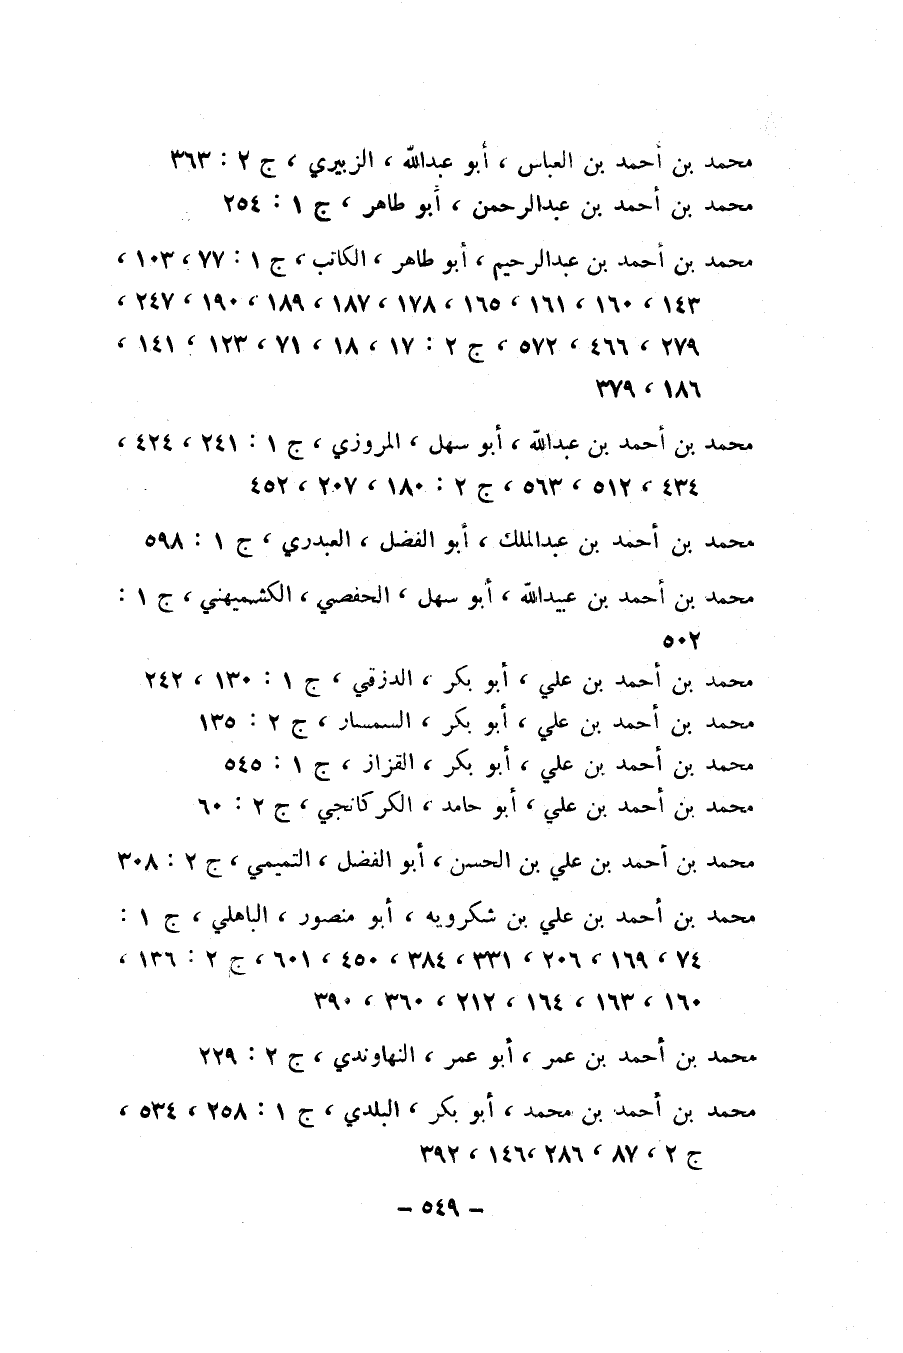 محمد بن أحمد بن العباس ، أبو عبدالله ، الزبيري ، ج ٢ : ٣٦٣
محمد بن أحمد بن عبدالرحمن ، أبو طاهر ، ج ١ : ٢٥٤
محمد بن أحمد بن عبدالرحيم ، أبو طاهر ، الكاتب ، ج ١ : ٧٧ ، ١٠٣ ،
١٤٣ ، ١٦٠ ، ١٦١ ، ١٦٥ ، ١٧٨ ، ١٨٧ ، ١٨٩ ، ١٩٠ ، ٢٤٧ ،
٢٧٩ ، ٤٦٦ ، ٥٧٢ ، ج ٢ : ١٧ ، ١٨ ، ٧١ ، ١٢٣ ، ١٤١ ،
١٨٦ ، ٣٧٩
محمد بن أحمد بن عبدالله ، أبو سهل ، المروزي ، ج ١ : ٢٤١ ، ٤٢٤ ،
٤٣٤ ، ٥١٢ ، ٥٦٣ ، ج ٢ : ١٨٠ ، ٢٠٧ ، ٤٥٢
محمد بن أحمد بن عبدالملك ، أبو الفضل ، العبدري ، ج ١ : ٥٩٨
محمد بن أحمد بن عبيدالله ، أبو سهل ، الحفصي ، الكشميهني ، ج ١ :
٥٠٢
محمد بن أحمد بن علي ، أبو بكر ، الدزقي ، ج ١ : ١٣٠ ، ٢٤٢
محمد بن أحمد بن علي ، أبو بكر ، السمسار ، ج ٢ : ١٣٥
محمد بن أحمد بن علي ، أبو بكر ، القزاز ، ج ١ : ٥٤٥
محمد بن أحمد بن علي ، أبو حامد ، الكركانجي ، ج ٢ : ٦٠
محمد بن أحمد بن علي بن الحسن ، أبو الفضل ، التميمي ، ج ٢ : ٣٠٨
محمد بن أحمد بن علي بن شكرويه ، أبو منصور ، الباهلي ، ج ١ :
٧٤ ، ١٦٩ ، ٢٠٦ ، ٣٣١ ، ٣٨٤ ، ٤٥٠ ، ٦٠١ ، ج ٢ : ١٣٦ ،
١٦٠ ، ١٦٣ ، ١٦٤ ، ٢١٢ ، ٣٦٠ ، ٣٩٠
محمد بن أحمد بن عمر ، أبو عمر ، النهاوندي ، ج ٢ : ٢٢٩
محمد بن أحمد بن محمد ، أبو بكر ، البلدي ، ج ١ : ٢٥٨ ، ٥٣٤ ،
ج ٢ ، ٨٧ ، ٢٨٦ ،١٤٦ ، ٣٩٢
– ٥٤٩ –